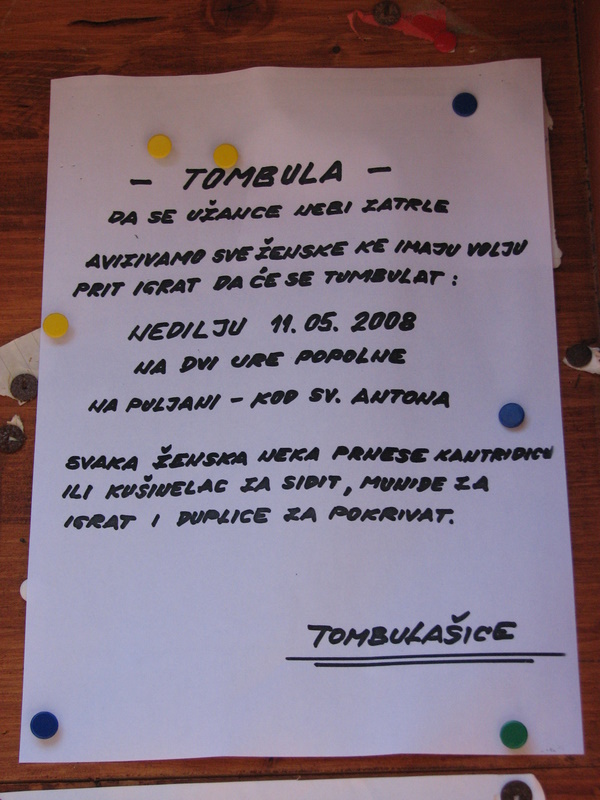 – TOMBULA –
DA SE UŽANCE NEBI ZATRLE
AVIZIVAMO SVE ŽENSKE KE IMAJU VOLJU
PRIT IGRAT DA ĆE SE TUMBULAT :
NEDILJU 11.05. 2008
NA DVI URE POPOLNE
NA PULJANI – KOD SV. ANTONA
SVAKA ŽENSKA NEKA PRNESE KANTRIDICU
ILI KUŠINELAC ZA SIDIT, MUNIDE ZA
IGRAT I DUPLICE ZA POKRIVAT.
TOMBULAŠICE